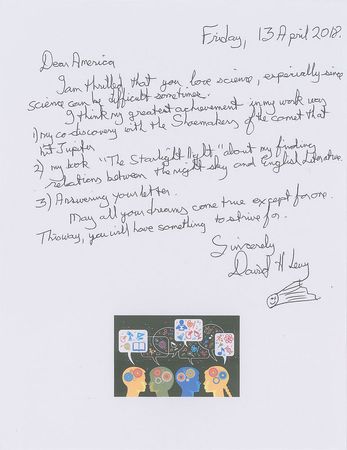 Friday, 13 April 2018.
Dear America
I am thrilled that you love science, especially since
science can be difficult sometimes.
I think my greatest achievement in my work was
1) my co-discovery with the Shoemakers of the comet that
hit Jupiter
2) my book "The Starlight Night" about my finding
relations between the night sky and English Literature.
3) Answering your letter.
May all your dreams come true except for one.
This way, you will have something to strive for.
Sincerely
David H Levy